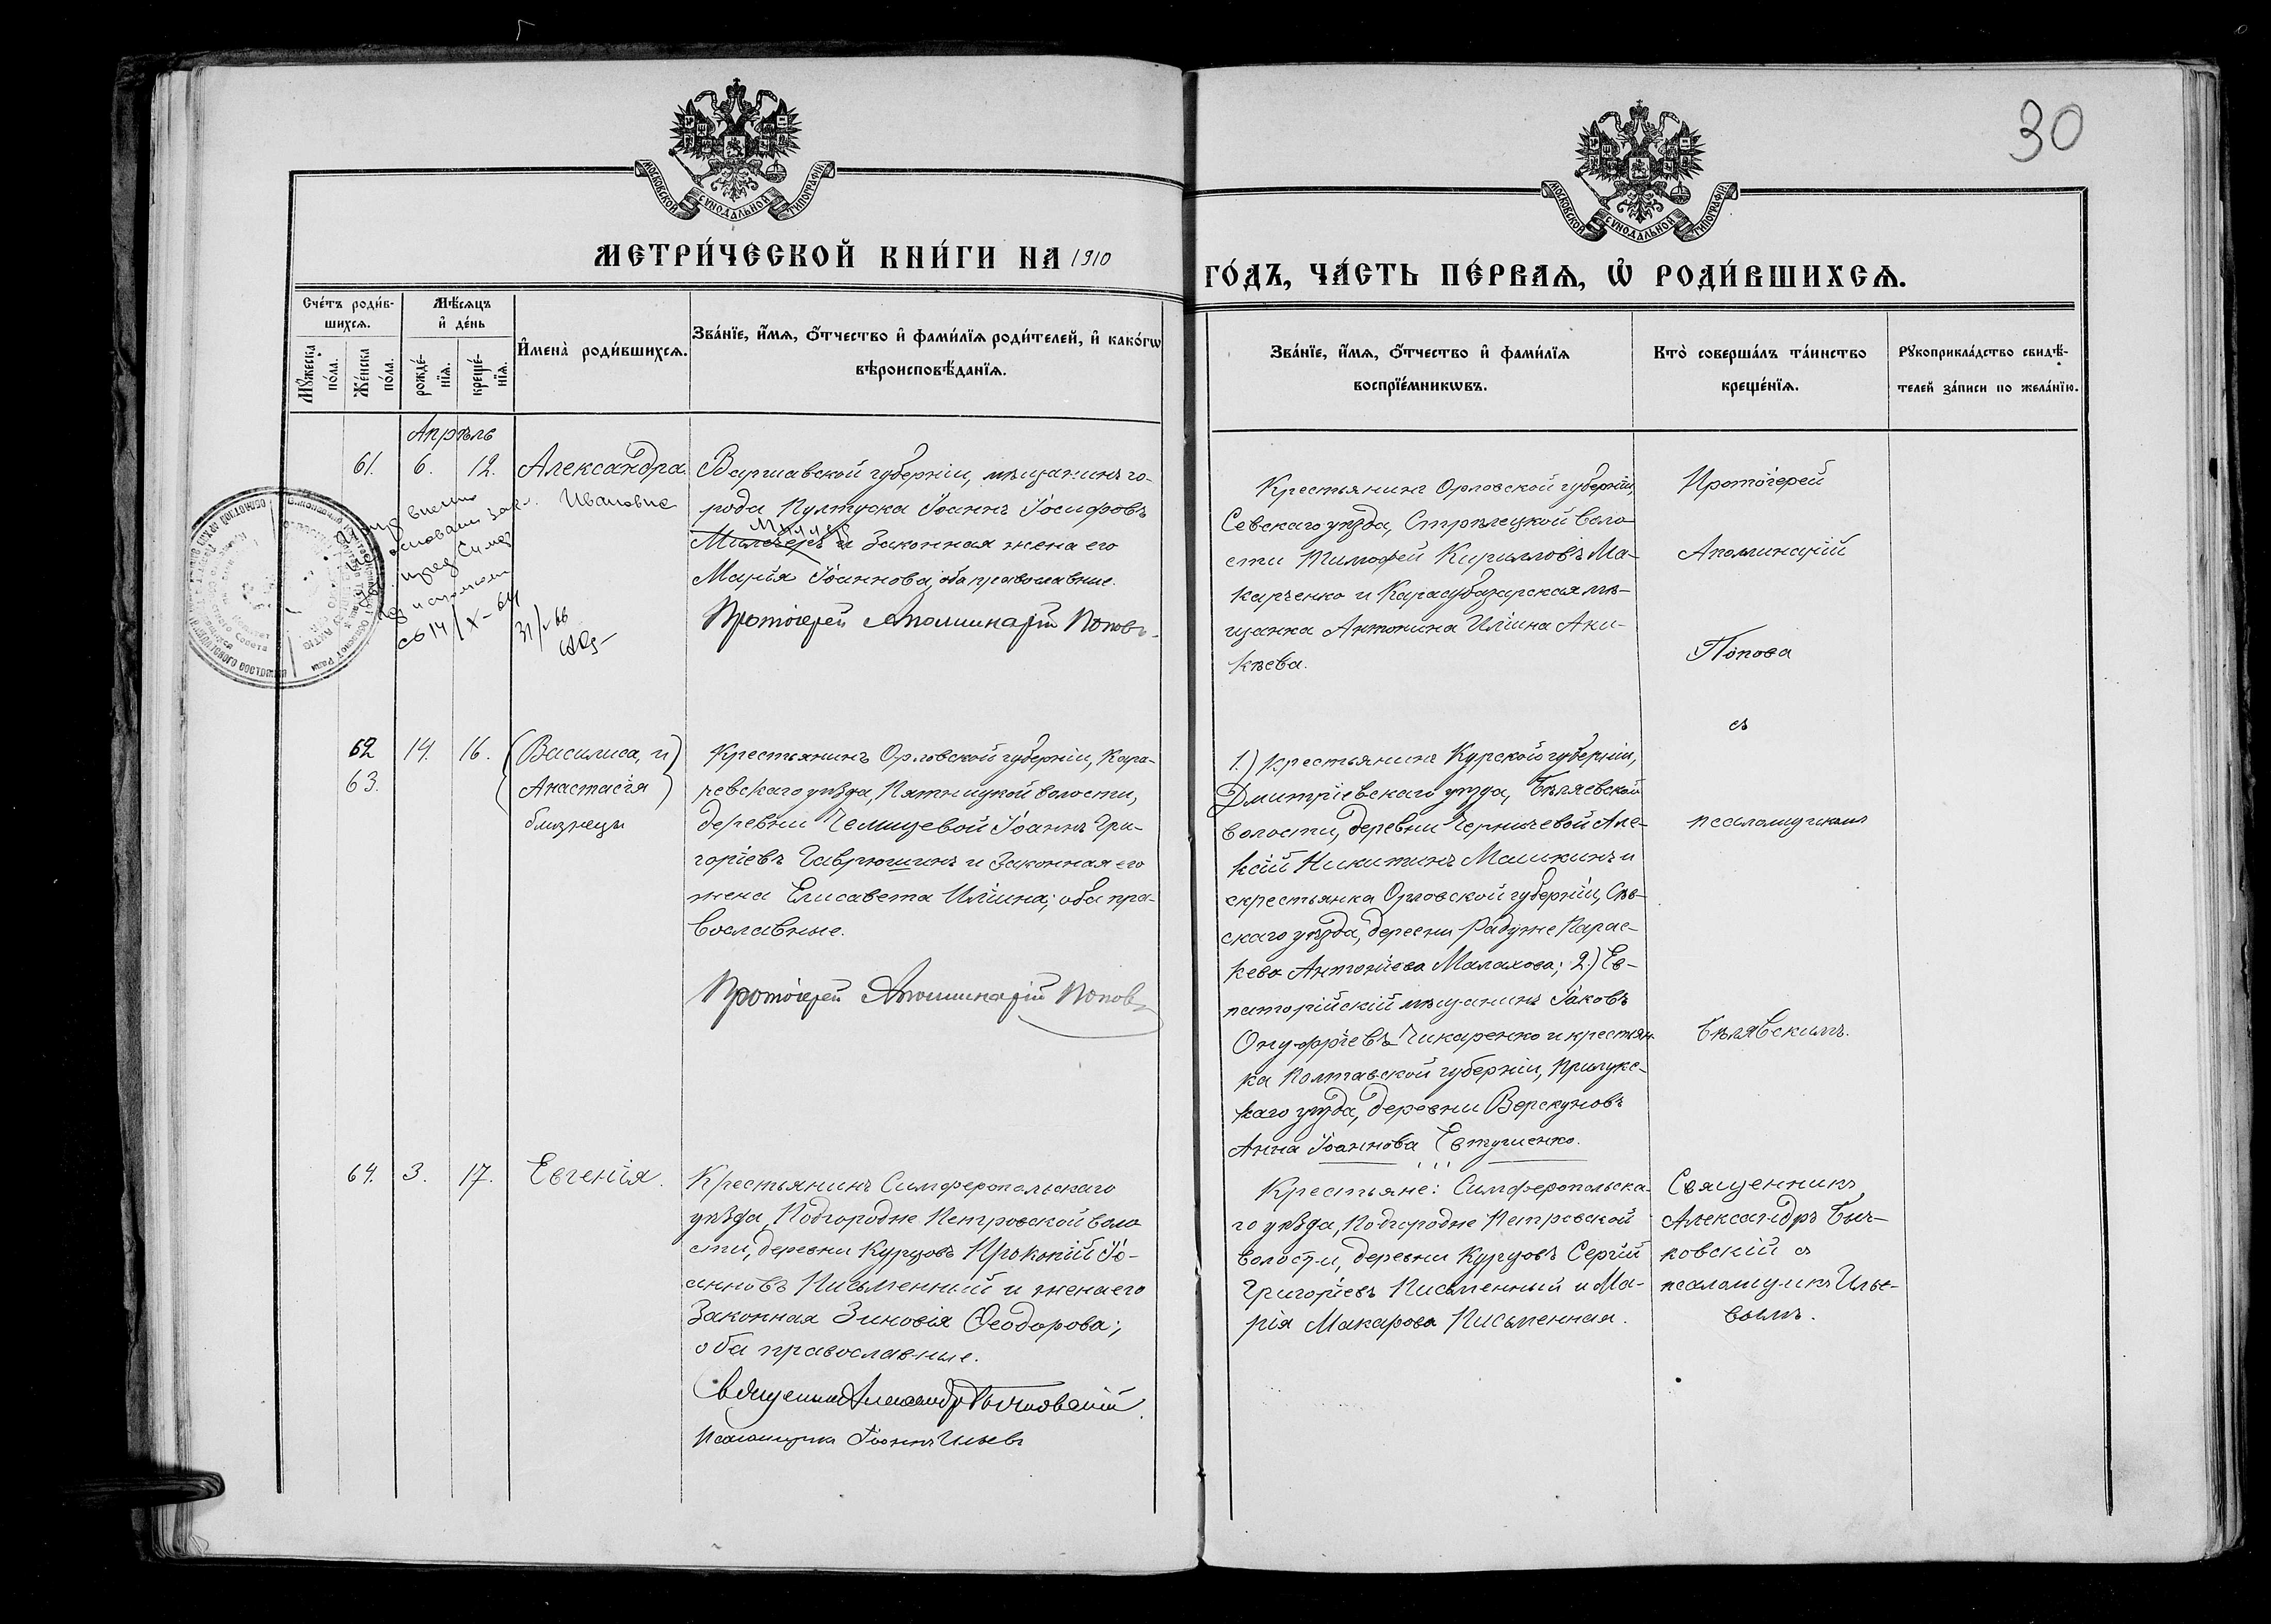 30
МОСКОВСКОЙ СѴНОДАЛЬНОЙ ТИПОГРАФІИ
МОСКОВСКОЙ СѴНОДАЛЬНОЙ ТИПОГРАФІИ
МЕТРИ́ЧЕСКОЙ КНИ́ГИ НА 1910
ГО́ДЪ, ЧА́СТЬ ПЕ́РВАѦ, Ѡ҆ РОДИ́ВШИХСѦ.
Сче́тъ роди́в-
шихсѧ.
Мꙋ́жеска по́ла.
Же́нска по́ла.
Мѣ́сѧцъ
и҆ де́нь
рожде́-
нїѧ.
креще́-
нїѧ.
И҆мена̀ роди́вшихсѧ.
Зва́нїе, и҆́мѧ, ѻ҆́тчество и҆ фами́лїѧ роди́телей, и҆ како́гѡ
вѣроисповѣ́данїѧ.
Зва́нїе, и҆́мѧ, ѻ҆́тчество и҆ фами́лїѧ
воспрїе́мникѡвъ.
Кто̀ соверша́лъ та́инство
креще́нїѧ.
Рꙋкоприкла́дство свидѣ́-
телей за́писи по жела́нїю.
Апрѣль
61. 6. 12. Александра
Ивановна
Варшавской губерніи, мѣщанинъ го-
рода Пултуска Іоаннъ Іосифовъ
и законная жена его
Марія Іоаннова, оба православные.
Протоіерей Аполлинарій Поповъ
Крестьянинъ Орловской губерніи,
Севскаго уѣзда, Стрѣлецкой воло-
сти Тимофей Кирилловъ Ма-
карченко и Карасубазарская мѣ-
щанка Антонина Иліина Ани-
кѣева.
Протоіерей
Аполлинарій
Попова
съ
псаломщикомъ
Бѣлявскимъ.
внесено
основании
31/ 66
62 14. 16. Василиса, и
63. Анастасія
близнецы
Крестьянинъ Орловской губерніи, Кара-
чевскаго уѣзда, Пятницкой волости,
деревни Челищевой Іоаннъ Гри-
горіевъ Гаврюшинъ и законная его
жена Елисавета Иліина; оба пра-
вославные.
Протоіерей Аполлинарій Поповъ
1.) Крестьянинъ Курской губерніи,
Дмитріевскаго уѣзда, Бѣляевской
волости, деревни Черничевой Але-
ксій Никитинъ Машкинъ и
крестьянка Орловской губерніи, Сѣв-
скаго уѣзда, деревни Радужe Парас-
кева Антоніева Малахова; 2.) Ев-
паторійскій мѣщанинъ Іаковъ
Онуфріевъ Чикаренко и крестьян-
ка Полтавской губерніи, Прилукс-
каго уѣзда, деревни Верскуновъ
Анна Іоаннова Евтушенко.
64. 3. 17. Евгенія.
Крестьянинъ Симферопольскаго
уѣзда, Подгородне Петровской воло-
сти, деревни Курцовъ Прокопій Іо-
анновъ Письменный и жена его
законная Зиновія Ѳеодорова;
оба православные.
Священникъ Александръ Бычковскій
Псаломщикъ Іоаннъ Ильевъ
Крестьяне: Симферопольска-
го уѣзда, Подгородне Петровской
волости, деревни Курцовъ Сергій
Григоріевъ Письменный и Ма-
рія Макарова Письменная.
Священникъ
Александръ Быч-
ковскій съ
псаломщикъ Илье-
вымъ.